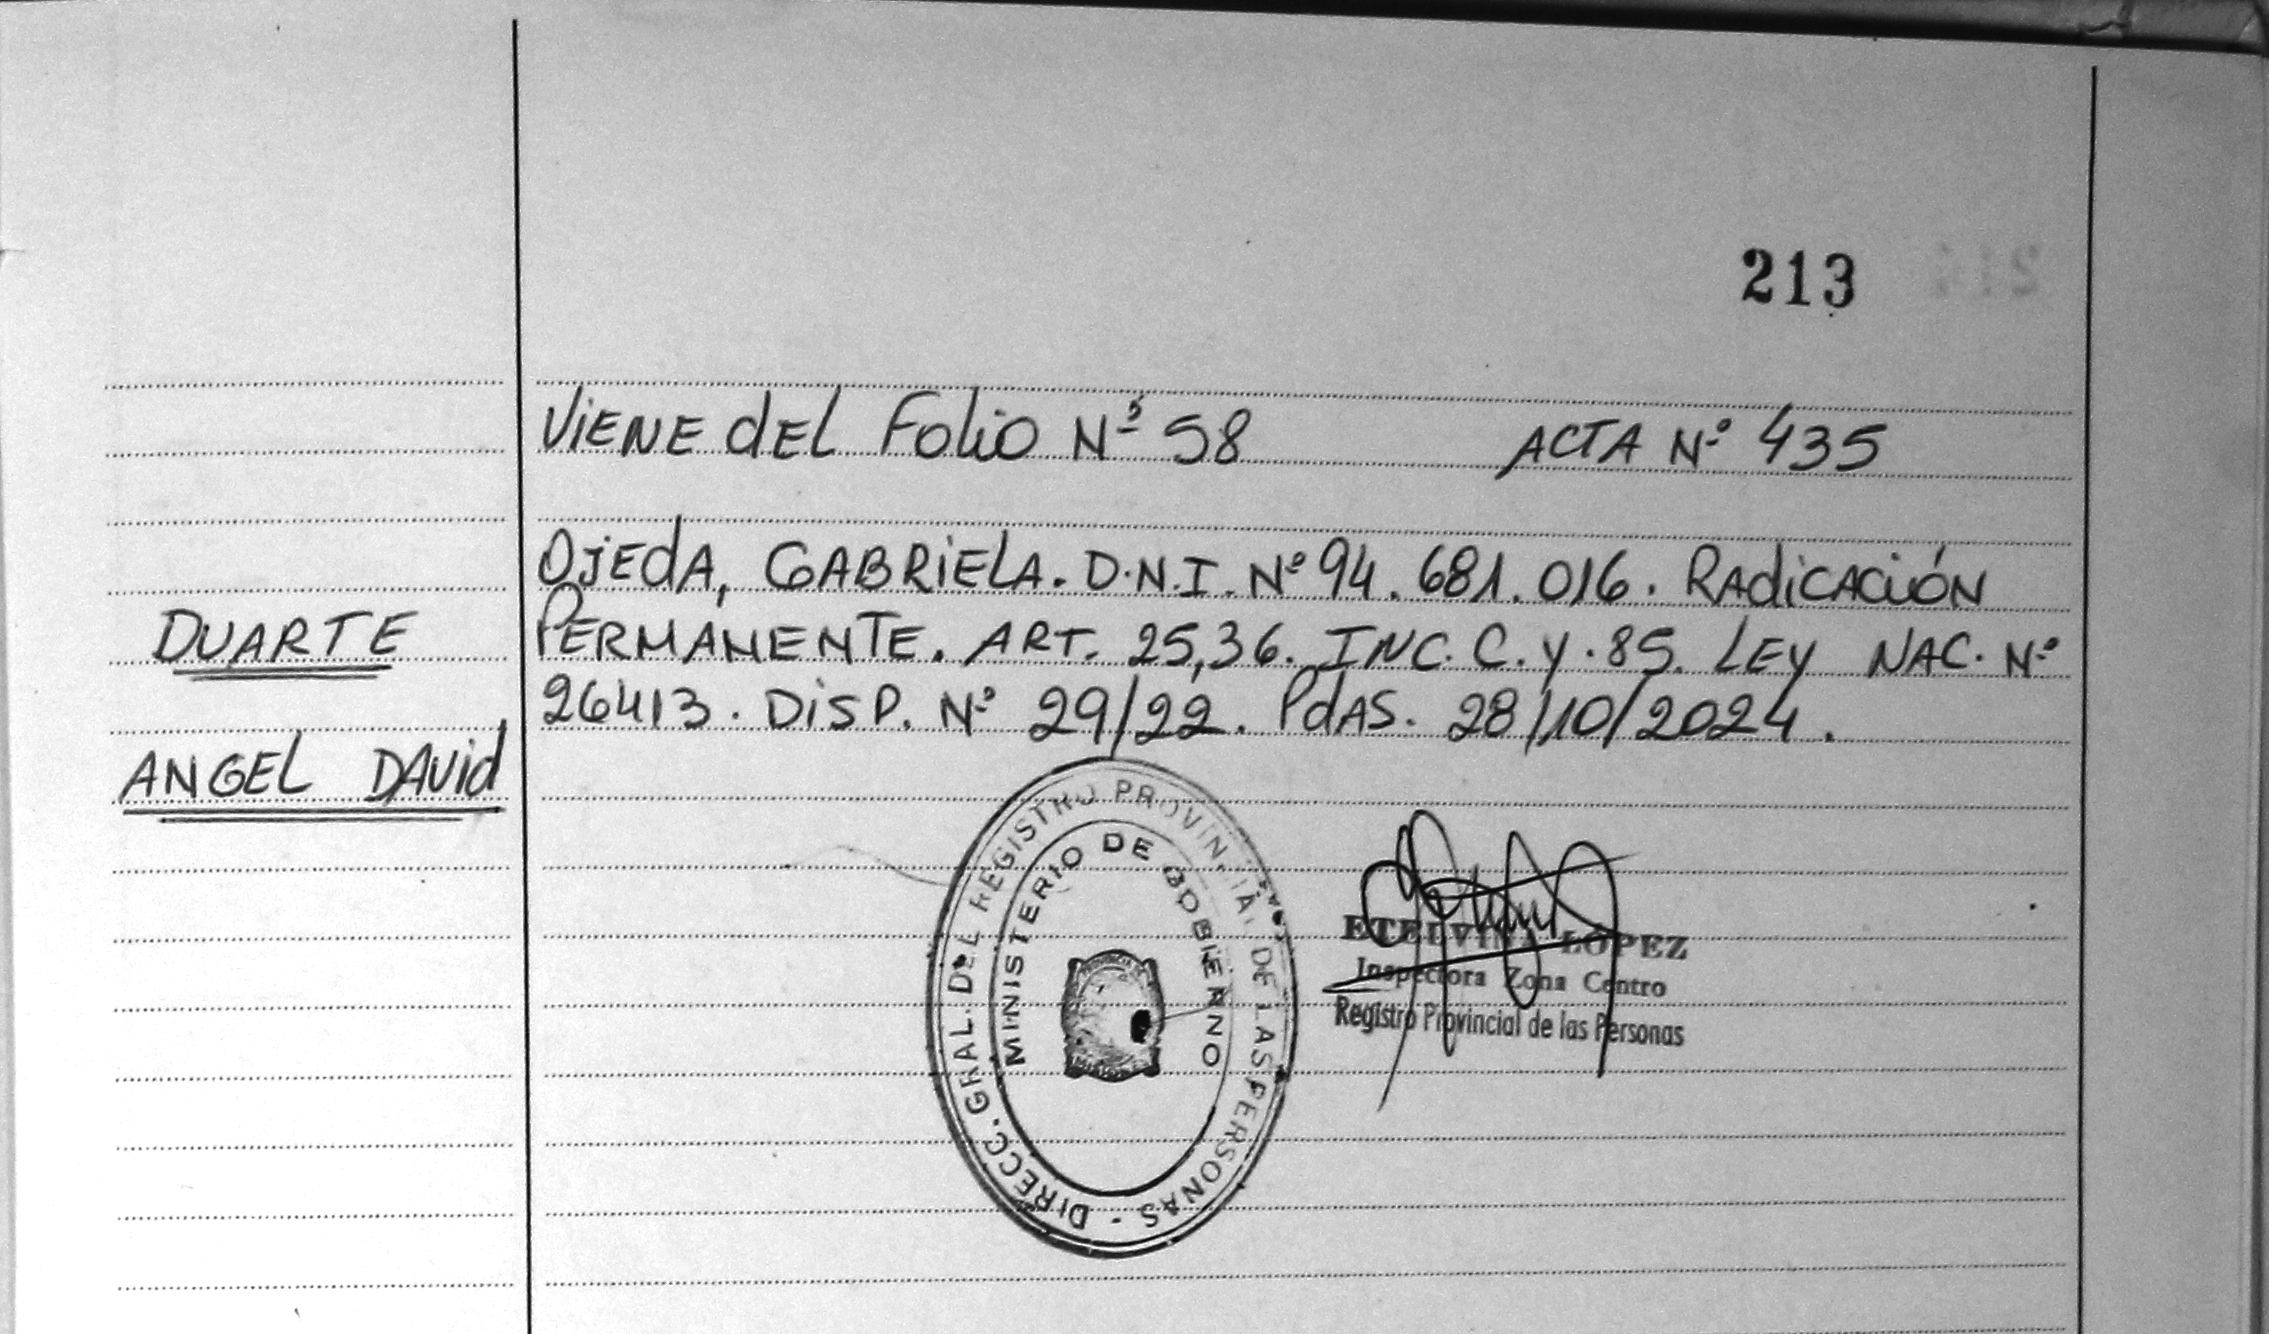 213
VIENE dEL FOLIO Nº 58 ACTA Nº 435
OJEdA, GABRIELA. D.N.I. Nº 94.681.016. RAdiCACIÓN
DUARTE
PERMANENTE. ART. 25,36. INC. C. Y. 85. LEY NAC. Nº
26413. DISP. Nº 29/22. PdAS. 28/10/2024.
ANGEL DAVid
DIRECC. GRAL. DEL REGISTRO PROVINCIAL DE LAS PERSONAS -
MINISTERIO DE GOBIERNO
ETELVINA LOPEZ
Inspectora Zona Centro
Registro Provincial de las Personas